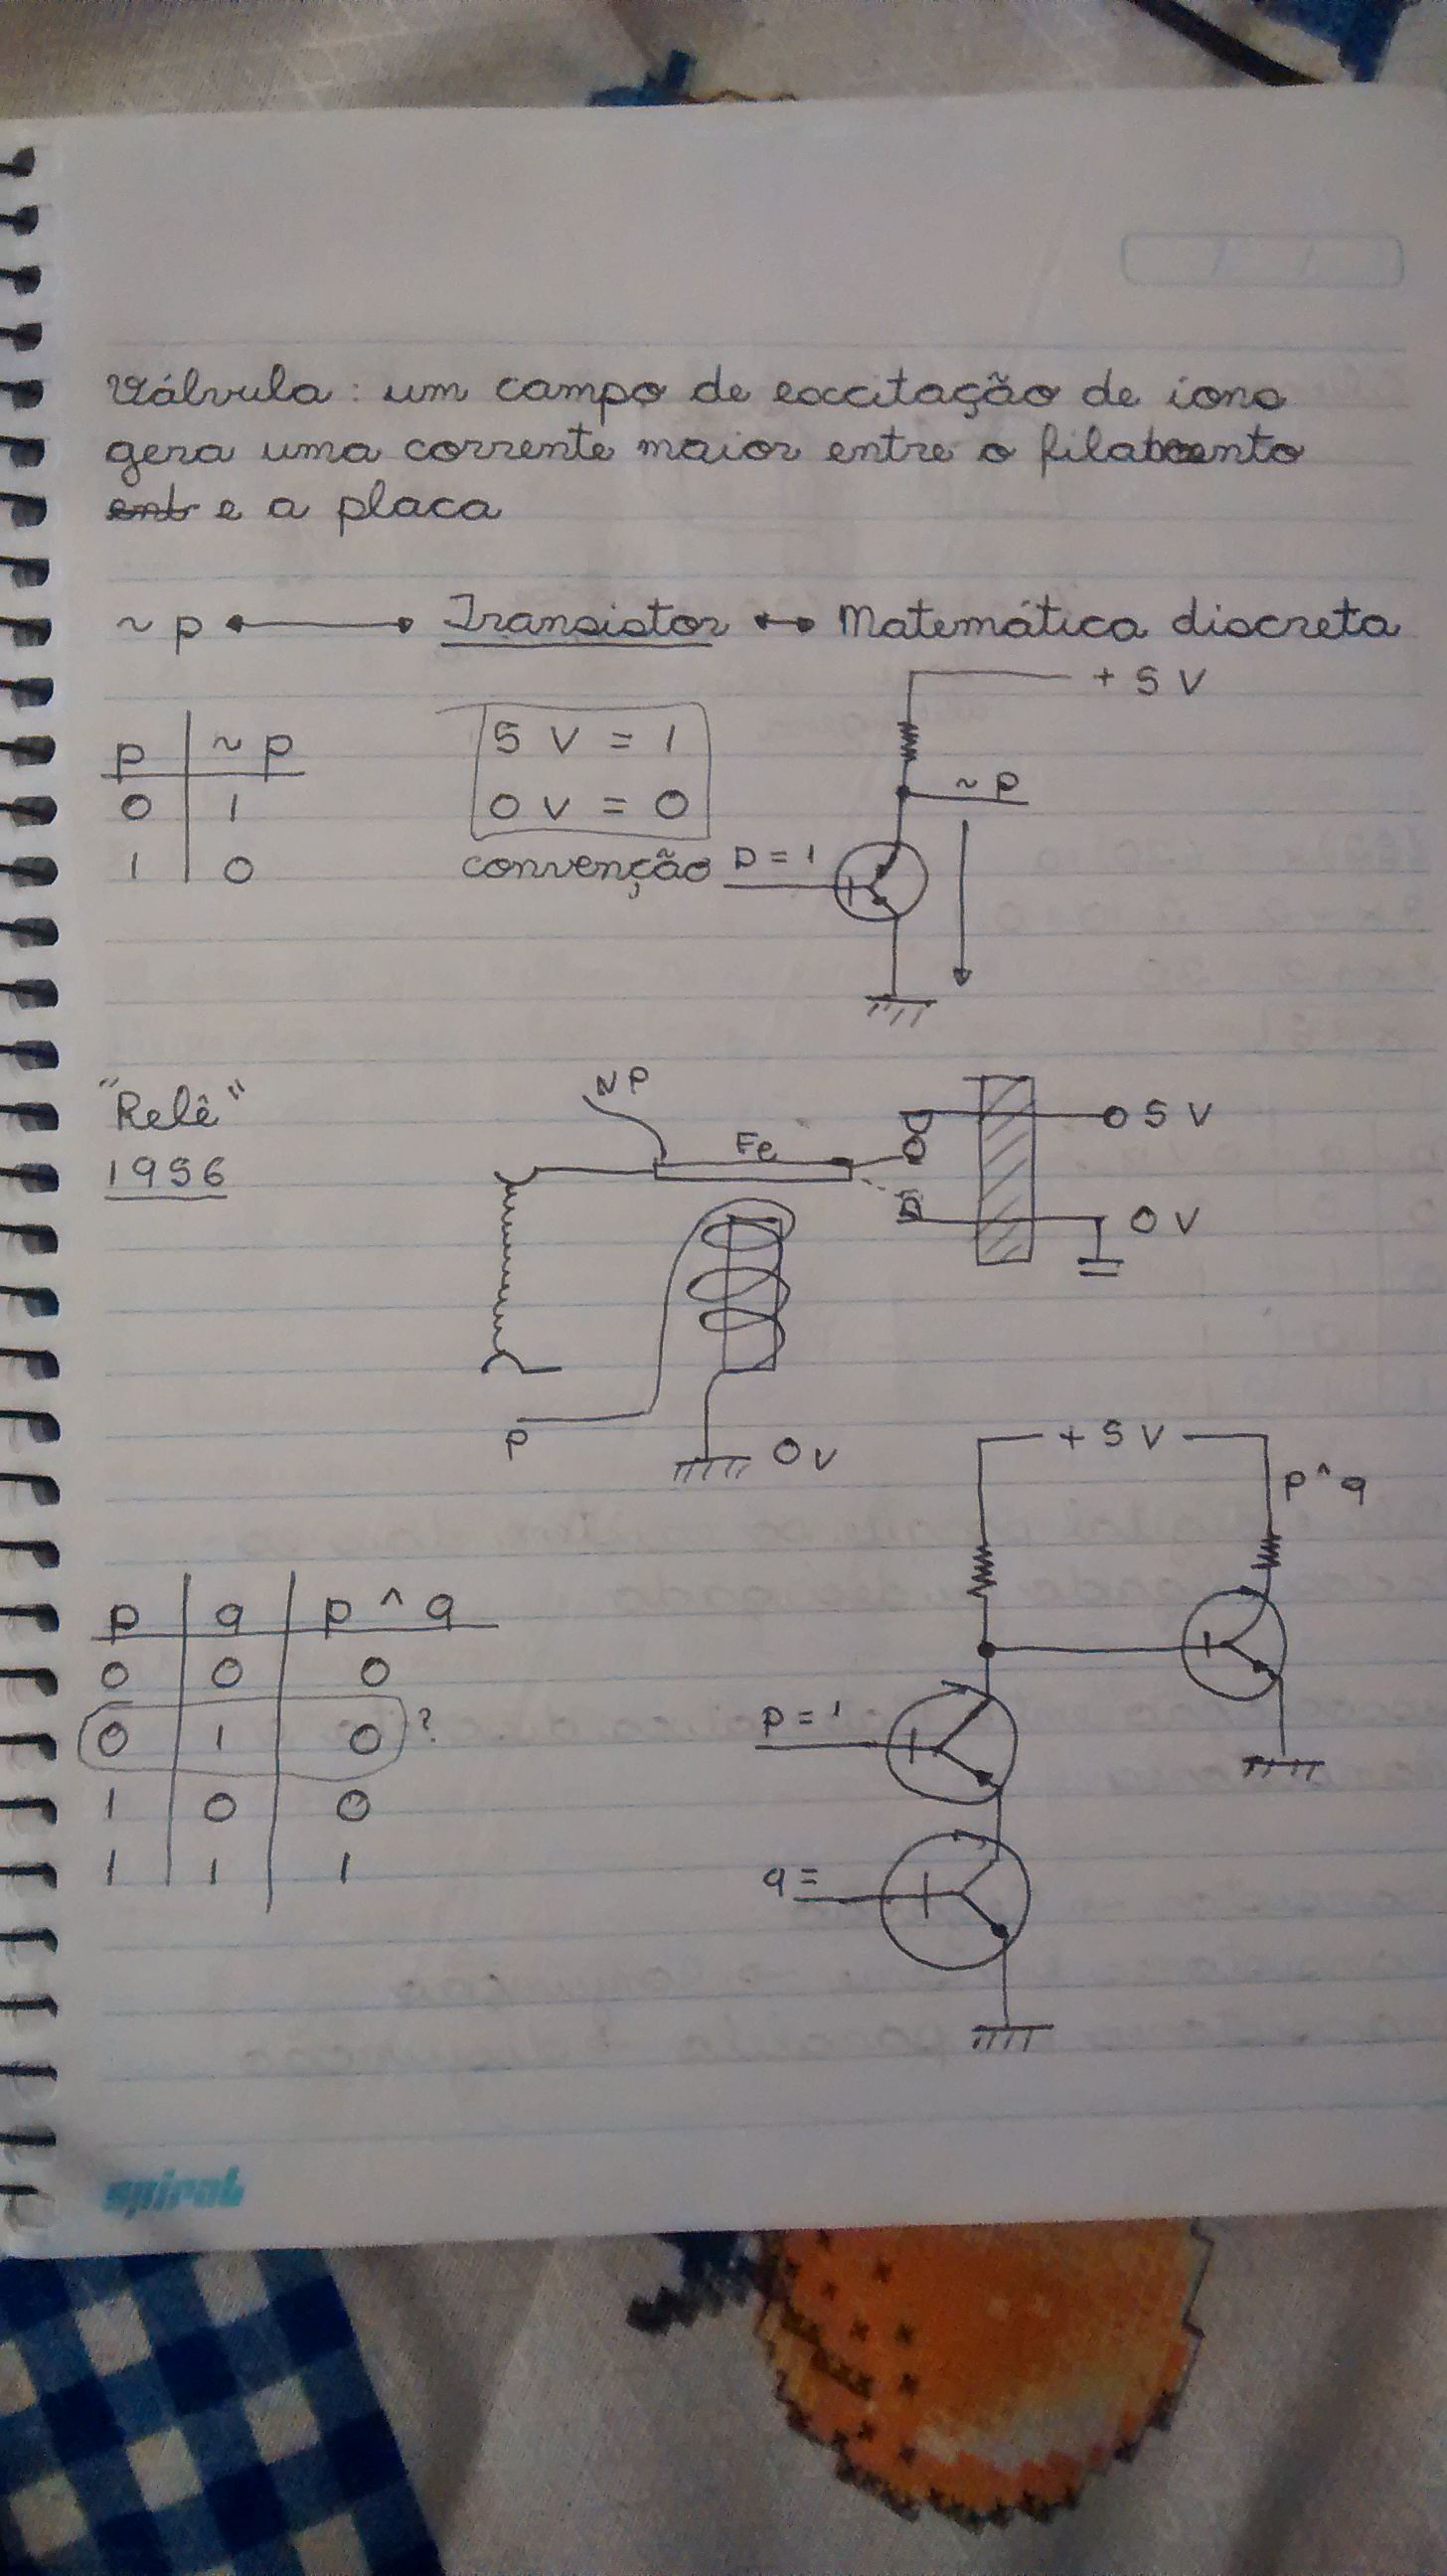 Válvula: um campo de excitação de íons
gera uma corrente maior entre o filamento
ent e a placa
~ p ↔ Transistor ↔ Matemática discreta
+ 5 V
p | ~ p
0 | 1
1 | 0
5 V = 1
0 V = 0
convenção
~ p
p = 1
"Relê"
1956
NP
Fe
5 V
0 V
P
0 V
+ 5 V
p ^ q
p | q | p ^ q
0 | 0 | 0
0 | 1 | 0 ?
1 | 0 | 0
1 | 1 | 1
p = 1
q =
spiral